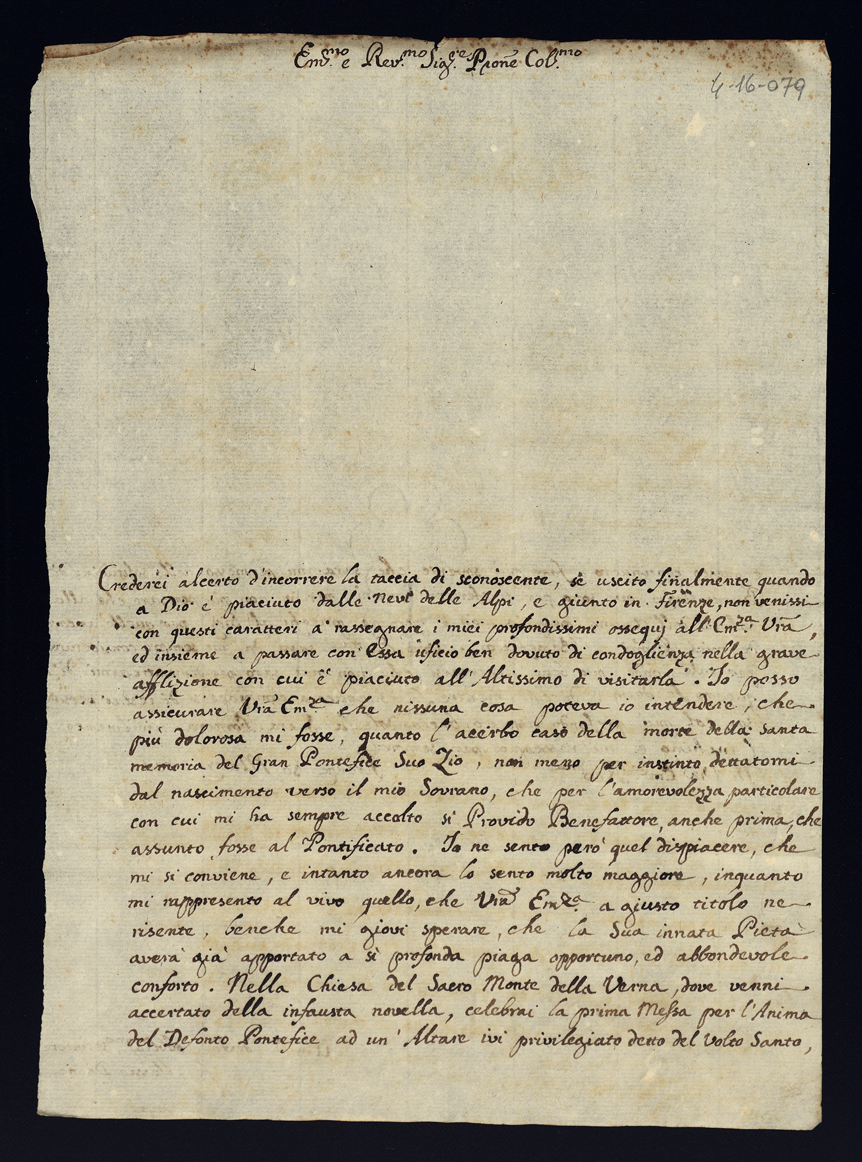 Em.mo e Rev.mo Sig.re Prone Col.mo
4-16-079
Crederei alcerto d'incorrere la taccia di sconoscente, se uscito finalmente quando
a Dio è piaciuto dalle Nevi delle Alpi, e giunto in Firenze, non venissi
con questi caratteri a rassegnare i miei profondissimi ossequj all' Em.za Vra,
ed insieme a passare con Essa uficio ben dovuto di condoglienza nella grave
afflizione con cui è piaciuto all' Altissimo di visitarla. Io posso
assicurare Vra Em.za che nissuna cosa poteva io intendere, che
più dolorosa mi fosse, quanto l'acerbo caso della morte della santa
memoria del Gran Pontefice Suo Zio, non meno per instinto dettatomi
dal nascimento verso il mio Sovrano, che per l'amorevolezza particolare
con cui mi ha sempre accolto sì Provido Benefattore, anche prima, che
assunto fosse al Pontificato. Io ne sento però quel dispiacere, che
mi si conviene, e intanto ancora lo sento molto maggiore, inquanto
mi rappresento al vivo quello, che Vra Em.za a giusto titolo ne
risente, benche mi giovi sperare, che la Sua innata Pietà
averà già apportato a sì profonda piaga opportuno, ed abbondevole
conforto. Nella Chiesa del Sacro Monte della Verna, dove venni
accertato della infausta novella, celebrai la prima Messa per l'Anima
del Defonto Pontefice ad un' Altare ivi privilegiato detto del Volto Santo,